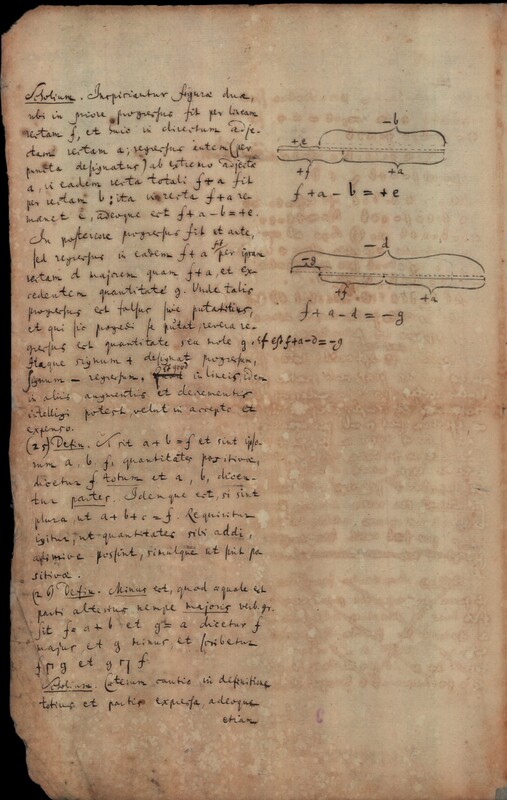 Scholium. Inspiciantur figurae duae,
ubi in priore progressus fit per lineam
rectam f, et huic in directum adje-
ctam rectam a; regressus autem (per
puncta designatur) ab extremo adjectae
a, in eadem recta totali f+a fit
per rectam b; ita in recta f+a re-
manet e, adeoque est f+a-b=+e.
In posteriore progressus fit ut ante,
sed regressus in eadem f+a fit per ipsam
rectam d majorem quam f+a, et ex-
cedentem quantitate g. Unde talis
progressus est falsus sive putatitius,
et qui sic progredi se putat, revera re-
gressus est quantitate, seu mole g, et est f+a-d=-g
Itaque signum + designat progressum,
signum - regressum. Et quod in lineis idem
in aliis augmentis et decrementis
intelligi potest, velut in accepto et
expenso.
(25) Defin. Si sit a+b=f et sint ipsa-
rum a, b, f, quantitates positivae,
dicetur f totum et a, b, dicen-
tur partes. Idemque est, si sint
plura, ut a+b+c=f. Requiritur
igitur, ut quantitates sibi addi,
adimive possint, simulque ut sint po-
sitivae.
(26) Defin. Minus est, quod aequale est
parti alterius nempe majoris verb. gr.
sit f=a+b et g=a dicetur f
majus, et g minus et scribetur
f ┌┐ g et g ┌┐ f.
Scholium. Caeterum cautio in definitione
totius et partis expressa, adeoque
etiam
-b
+e
+f +a
f+a-b=+e
-d
-g
+f +a
f+a-d=-g